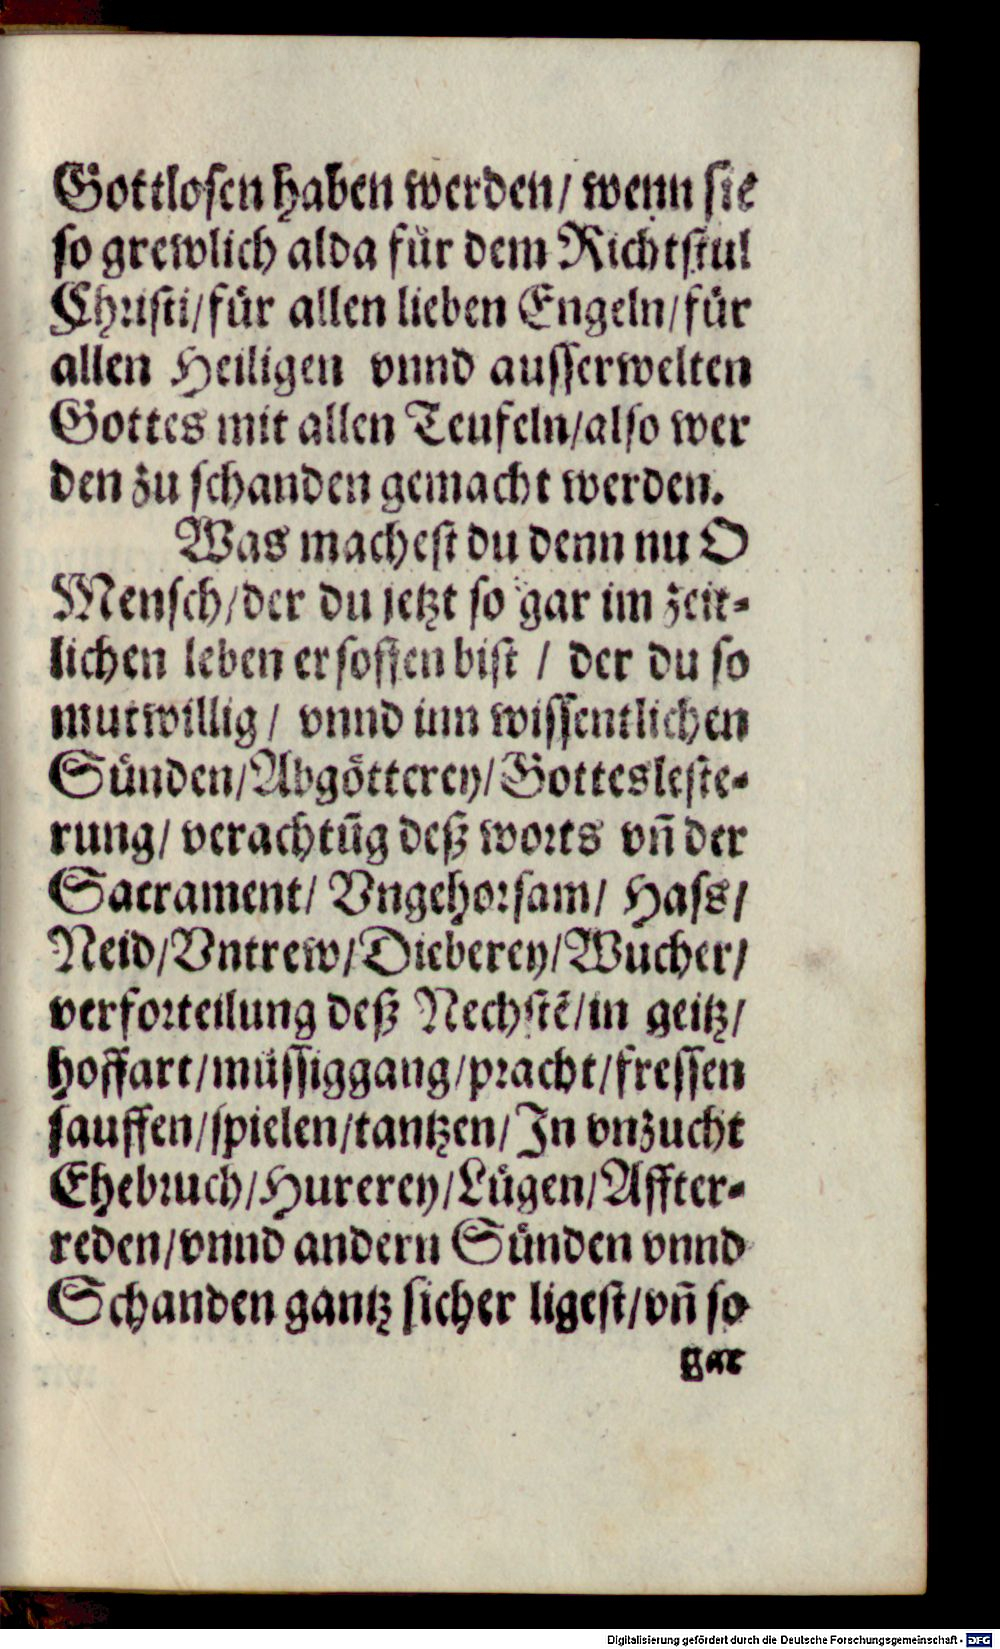 Gottlosen haben werden/ wenn sie
so grewlich alda für dem Richtstul
Christi/für allen lieben Engeln/für
allen Heiligen vnnd ausserwelten
Gottes mit allen Teufeln/also wer
den zu schanden gemacht werden.
Was machest du denn nu O
Mensch/der du jetzt so gar im zeit-
lichen leben ersoffen bist / der du so
mutwillig/ vnnd inn wissentlichen
Sünden/Abgötterey/Gottesleste-
rung/ verachtūg deß worts vn̄ der
Sacrament/ Vngehorsam/ Hass/
Neid/Vntrew/Dieberey/Wucher/
verforteilung deß Nechstē/in geitz/
hoffart/müssiggang/pracht/fressen
sauffen/spielen/tantzen/In vnzucht
Ehebruch/Hurerey/Lügen/Affter-
reden/vnnd andern Sünden vnnd
Schanden gantz sicher ligest/vn̄ so
gar
Digitalisierung gefördert durch die Deutsche Forschungsgemeinschaft - DFG